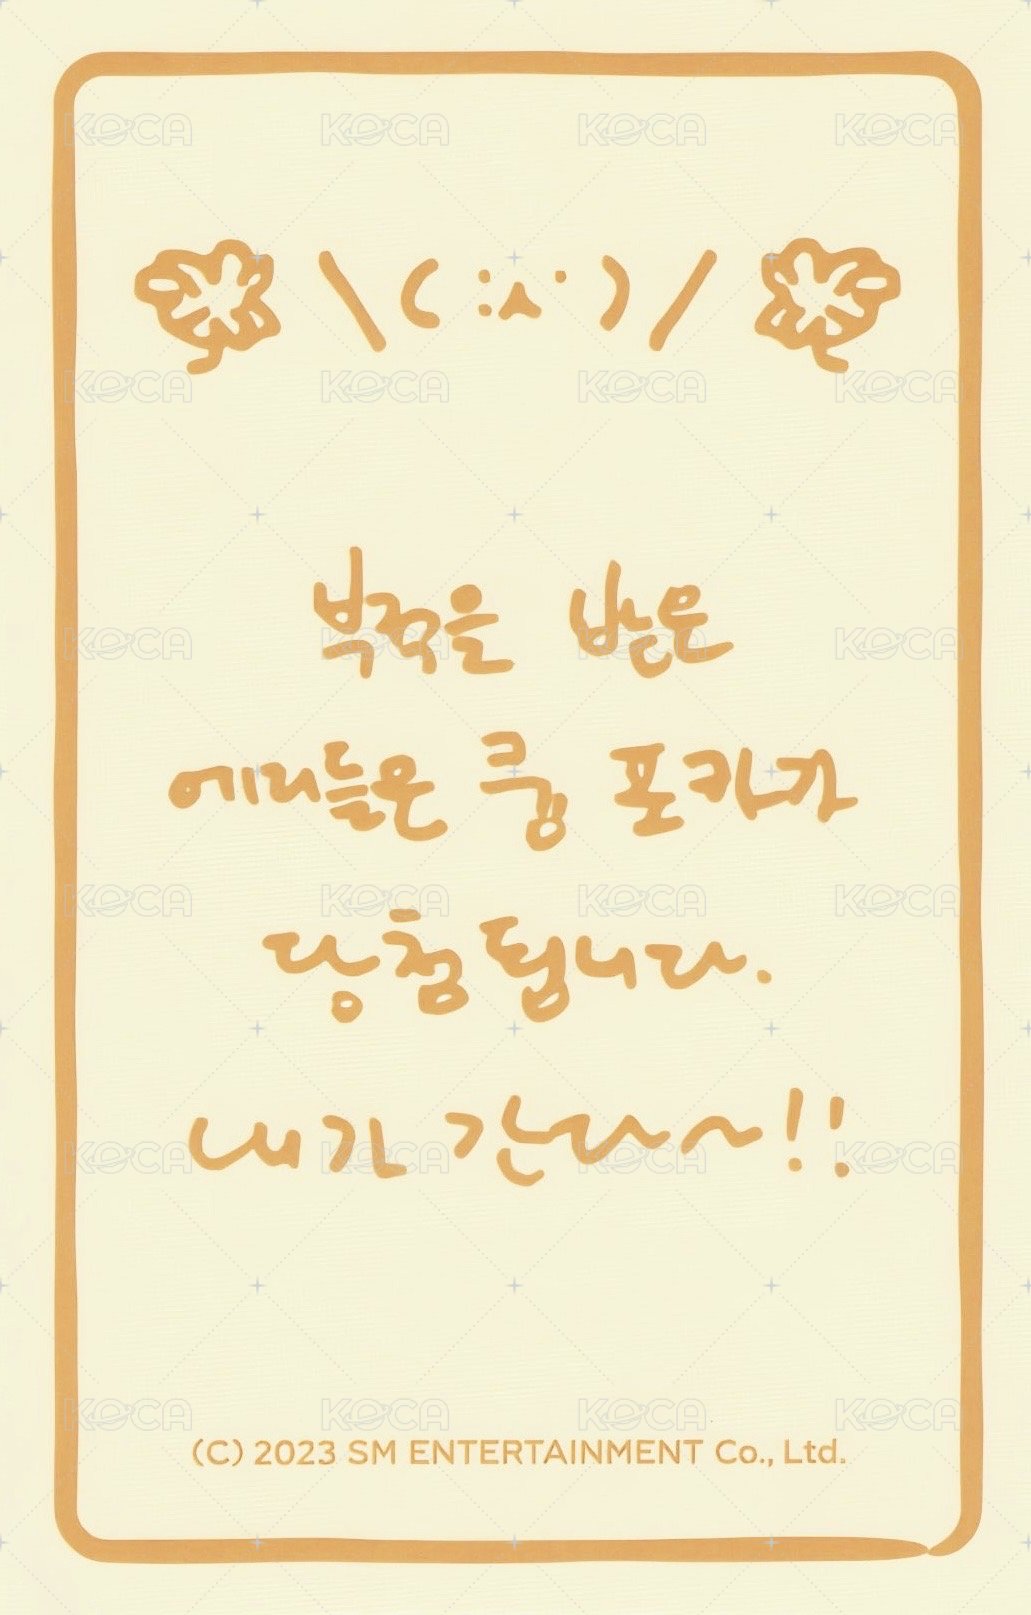 \( :ㅅ:)/
부적을 받은
에리들은 쿰 포카가
당첨됩니다.
내가 간다~!!
(C) 2023 SM ENTERTAINMENT Co., Ltd.
KOCA